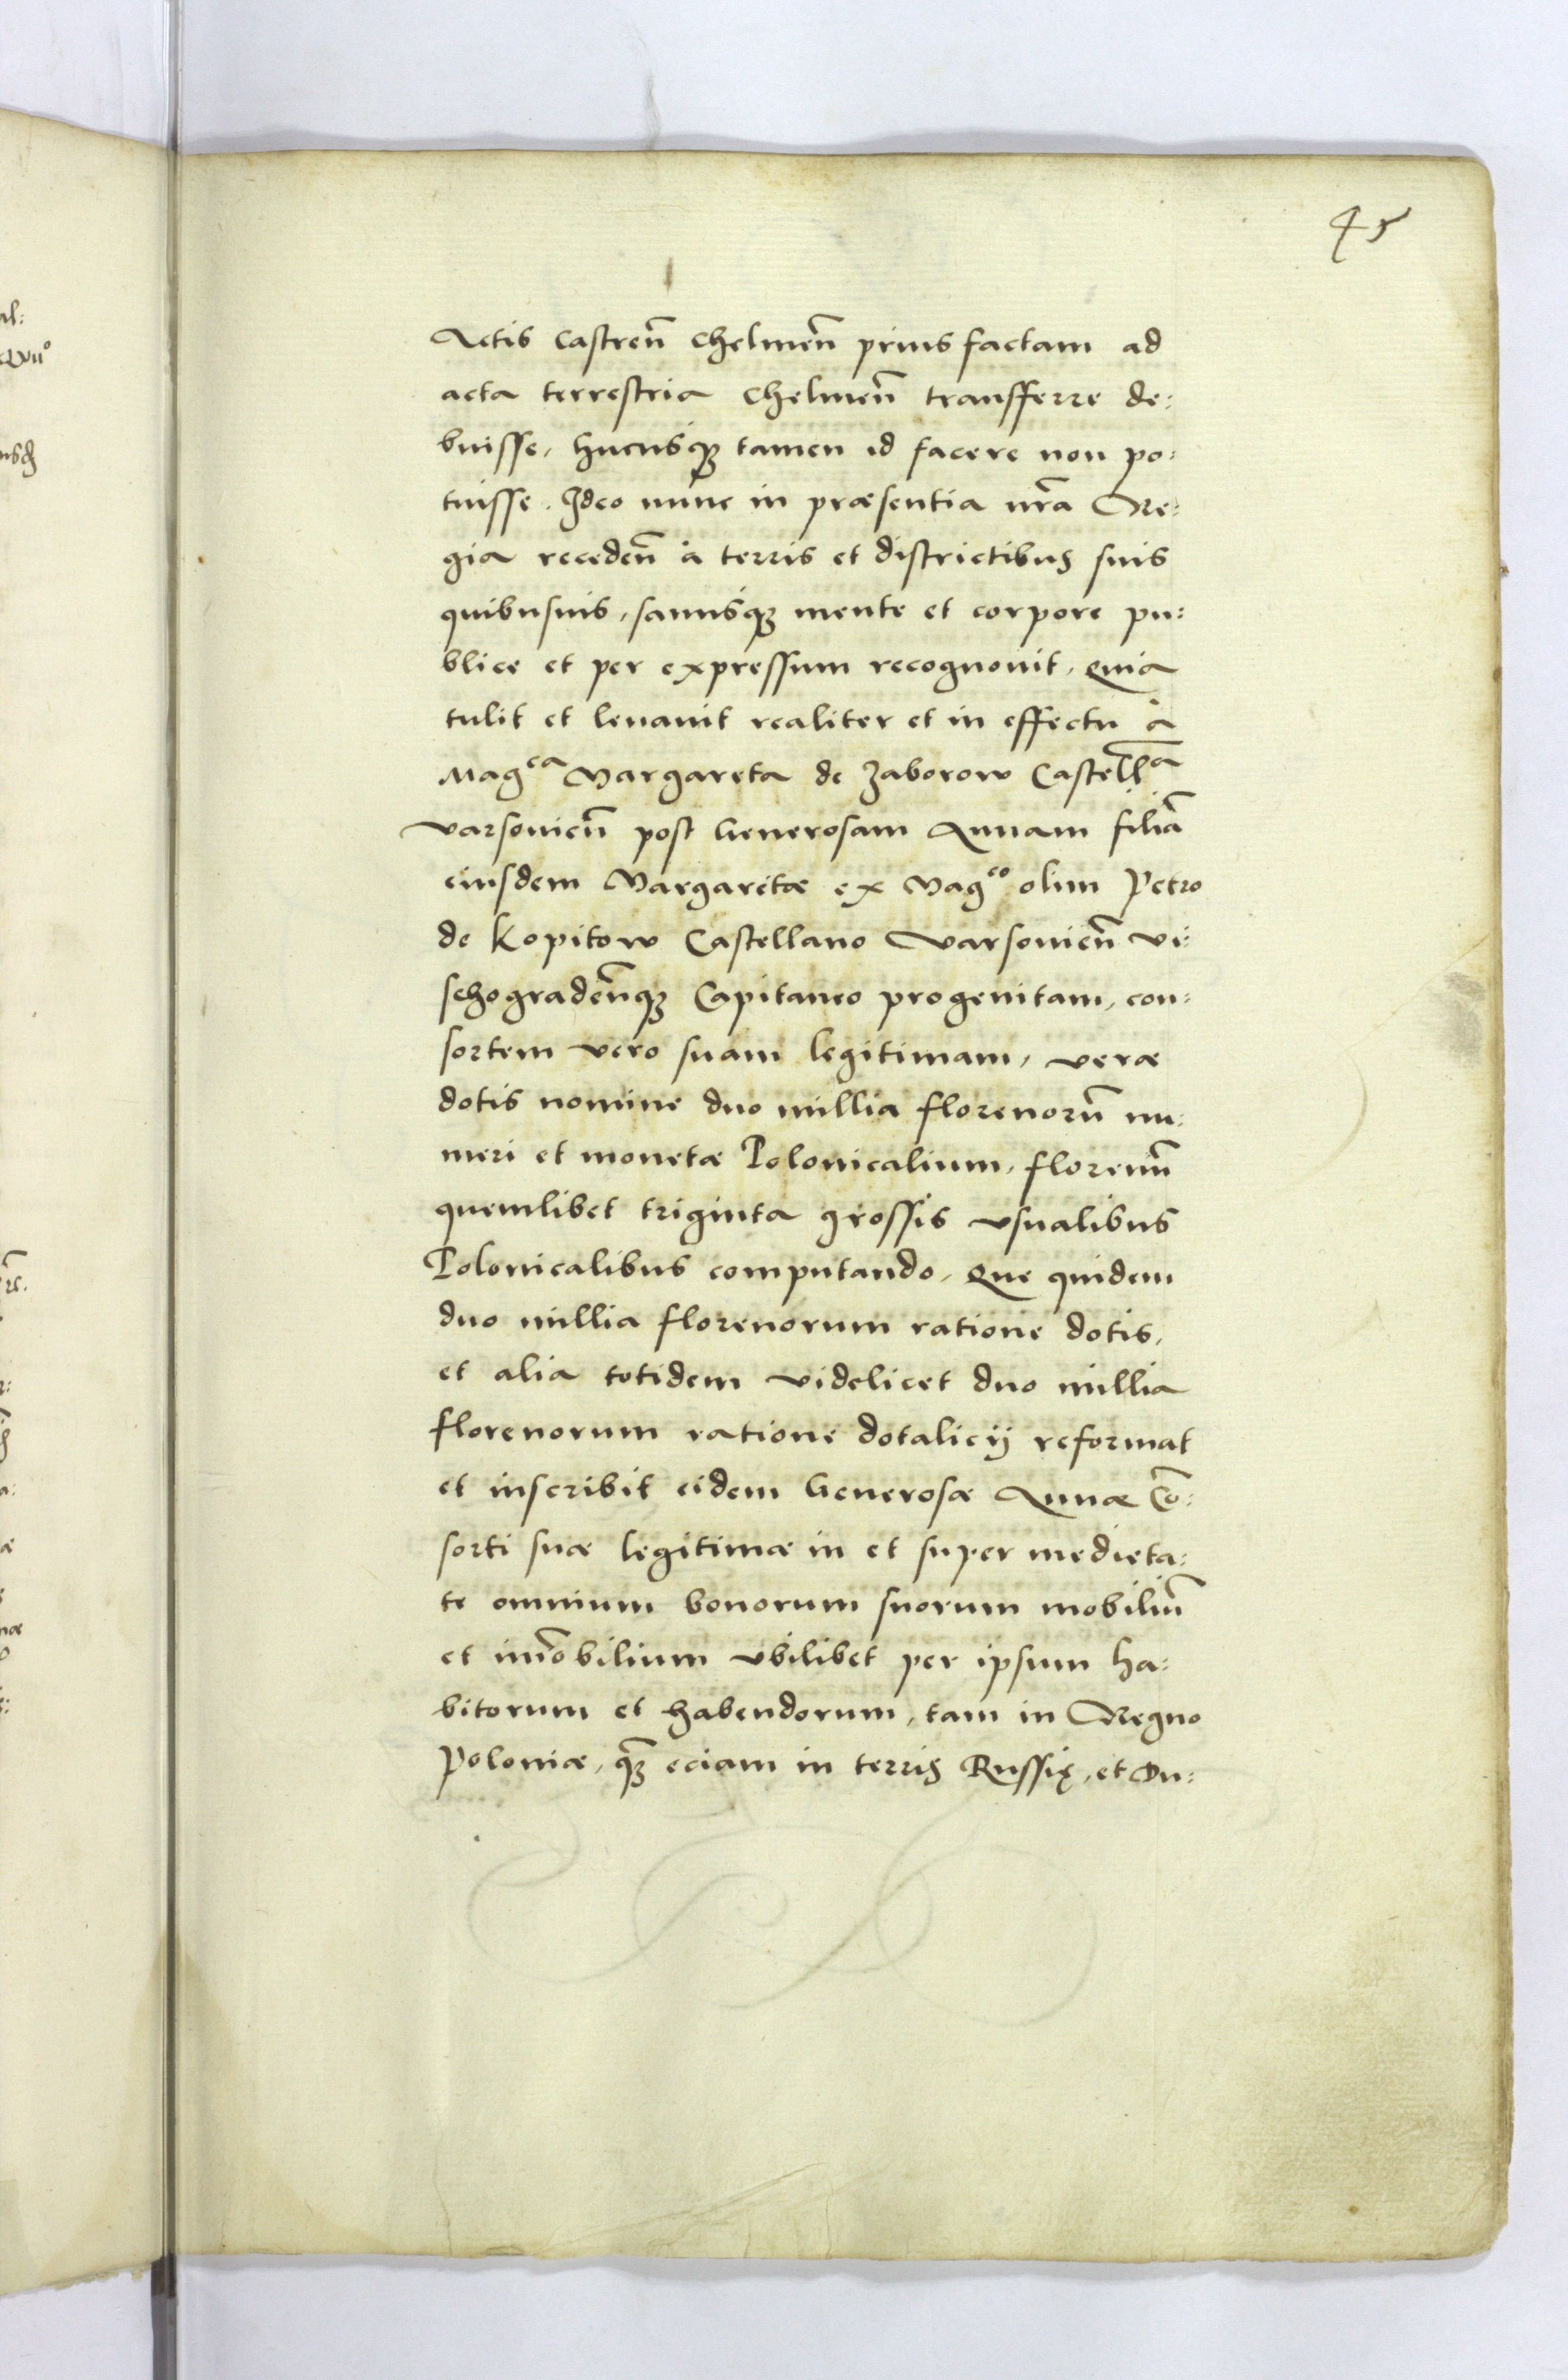 45
Actis Castreñ Chelmeñ prius factam ad
acta terrestria Chelmeñ transfferre de:
buisse, hucusq3 tamen id facere non po:
tuisse. Ideo nunc in præsentia nr̃a Re:
gia recedeñ à terris et districtibus suis
quibusuis, sanusq3 mente et corpore pu:
blice et per expressum recognouit, Quia
tulit et leuauit realiter et in effectu à
Mag^ca Margareta de Zaborow Castell^a
Varsouieñ post Generosam Annam filiã
eiusdem Margaritæ ex Mag^co olim Petro
de Kopitow Castellano Varsouieñ Vi:
schogradeñq3 Capitaneo progenitam, con:
sortem vero suam legitimam, veræ
dotis nomine duo millia florenorũ nu:
meri et monetæ Polonicalium, florenũ
quemlibet triginta grossis vsualibus
Polonicalibus computando, Que quidem
duo millia florenorum ratione dotis,
et alia totidem videlicet duo millia
florenorum ratione dotalicij reformat
et inscribit eidem Generosæ Annæ Cõ:
sorti suæ legitimæ in et super medieta:
te omnium bonorum suorum mobiliũ
et im̃obilium vbilibet per ipsum ha:
bitorum et habendorum, tam in Regno
Poloniæ, q̃3 eciam in terris Russię, et Du: